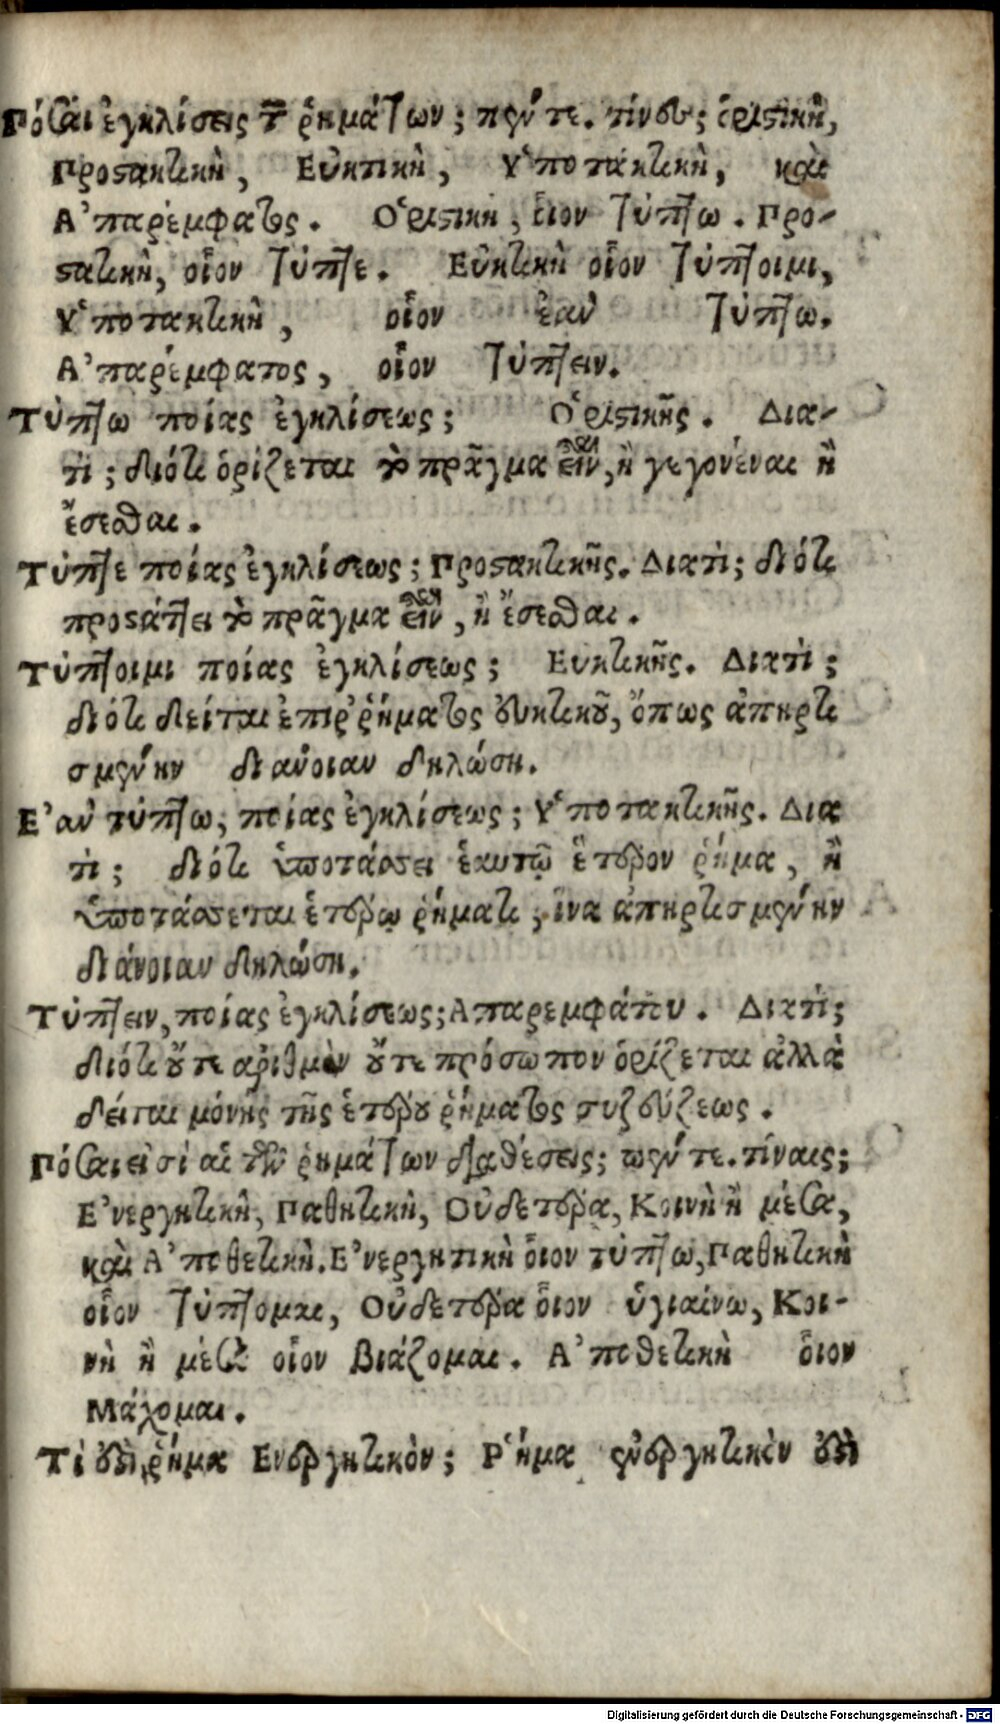 Πόσαι ἐγκλίσεις τῶν ῥημάτων; πέντε. τίνες; ὁριστικὴ,
Προστακτικὴ, Εὐκτικὴ, Ὑποτακτικὴ, καὶ
Ἀπαρέμφατος. Ὁριστικὴ, οἷον τύπτω. Προ-
στατικὴ, οἷον τύπτε. Εὐκτικὴ οἷον τύπτοιμι,
Ὑποτακτικὴ, οἷον ἐὰν τύπτω.
Ἀπαρέμφατος, οἷον τύπτειν.
Τύπτω ποίας ἐγκλίσεως; Ὁριστικῆς. Δια-
τὶ; διότι ὁρίζεται τὸ πρᾶγμα εἶναι, ἢ γεγονέναι ἢ
ἔσεσθαι.
Τύπτε ποίας ἐγκλίσεως; Προστακτικῆς. Διατὶ; διότι
προστάττει τὸ πρᾶγμα εἶναι, ἢ ἔσεσθαι.
Τύπτοιμι ποίας ἐγκλίσεως; Ευκτικῆς. Διατὶ;
διότι δεῖται ἐπιρρήματος εὐκτικοῦ, ὅπως ἀπηρτι
σμένην διάνοιαν δηλώσῃ.
Ἐὰν τύπτω, ποίας ἐγκλίσεως; Ὑποτακτικῆς. Δια
τὶ; διότι ὑποτάσσει ἑαυτῷ ἕτερον ῥῆμα, ἢ
ὑποτάσσεται ἑτέρῳ ῥήματι, ἵνα ἀπηρτισμένην
διάνοιαν δηλώσῃ.
Τύπτειν, ποίας ἐγκλίσεως; Απαρεμφάτου. Διατὶ;
διότι οὔτε ἀριθμὸν οὔτε πρόσωπον ὁρίζεται ἀλλὰ
δεῖται μόνης τῆς ἑτέρου ῥήματος συζεύξεως.
Πόσαι εἰσὶ αἱ τῶν ῥημάτων διαθέσεις; πέντε. τίναις;
Ἐνεργητικὴ, Παθητικὴ, Οὐδετέρα, Κοινὴ ἢ μέσα,
καὶ Ἀποθετικὴ. Ἐνεργητικὴ οἷον τύπτω, Παθητικὴ
οἷον τύπτομαι, Οὐδετέρα οἷον ὑγιαίνω, Κοι-
νὴ ἢ μέσα οἷον Βιάζομαι. Ἀποθετικὴ οἷον
Μάχομαι.
Τί ἐστὶ ῥῆμα Ενεργητικὸν; Ῥῆμα ἐνεργητικὸν ἐστὶ